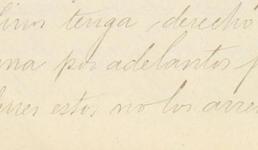 tenga derecho
na por adelantos p
estos no los arre